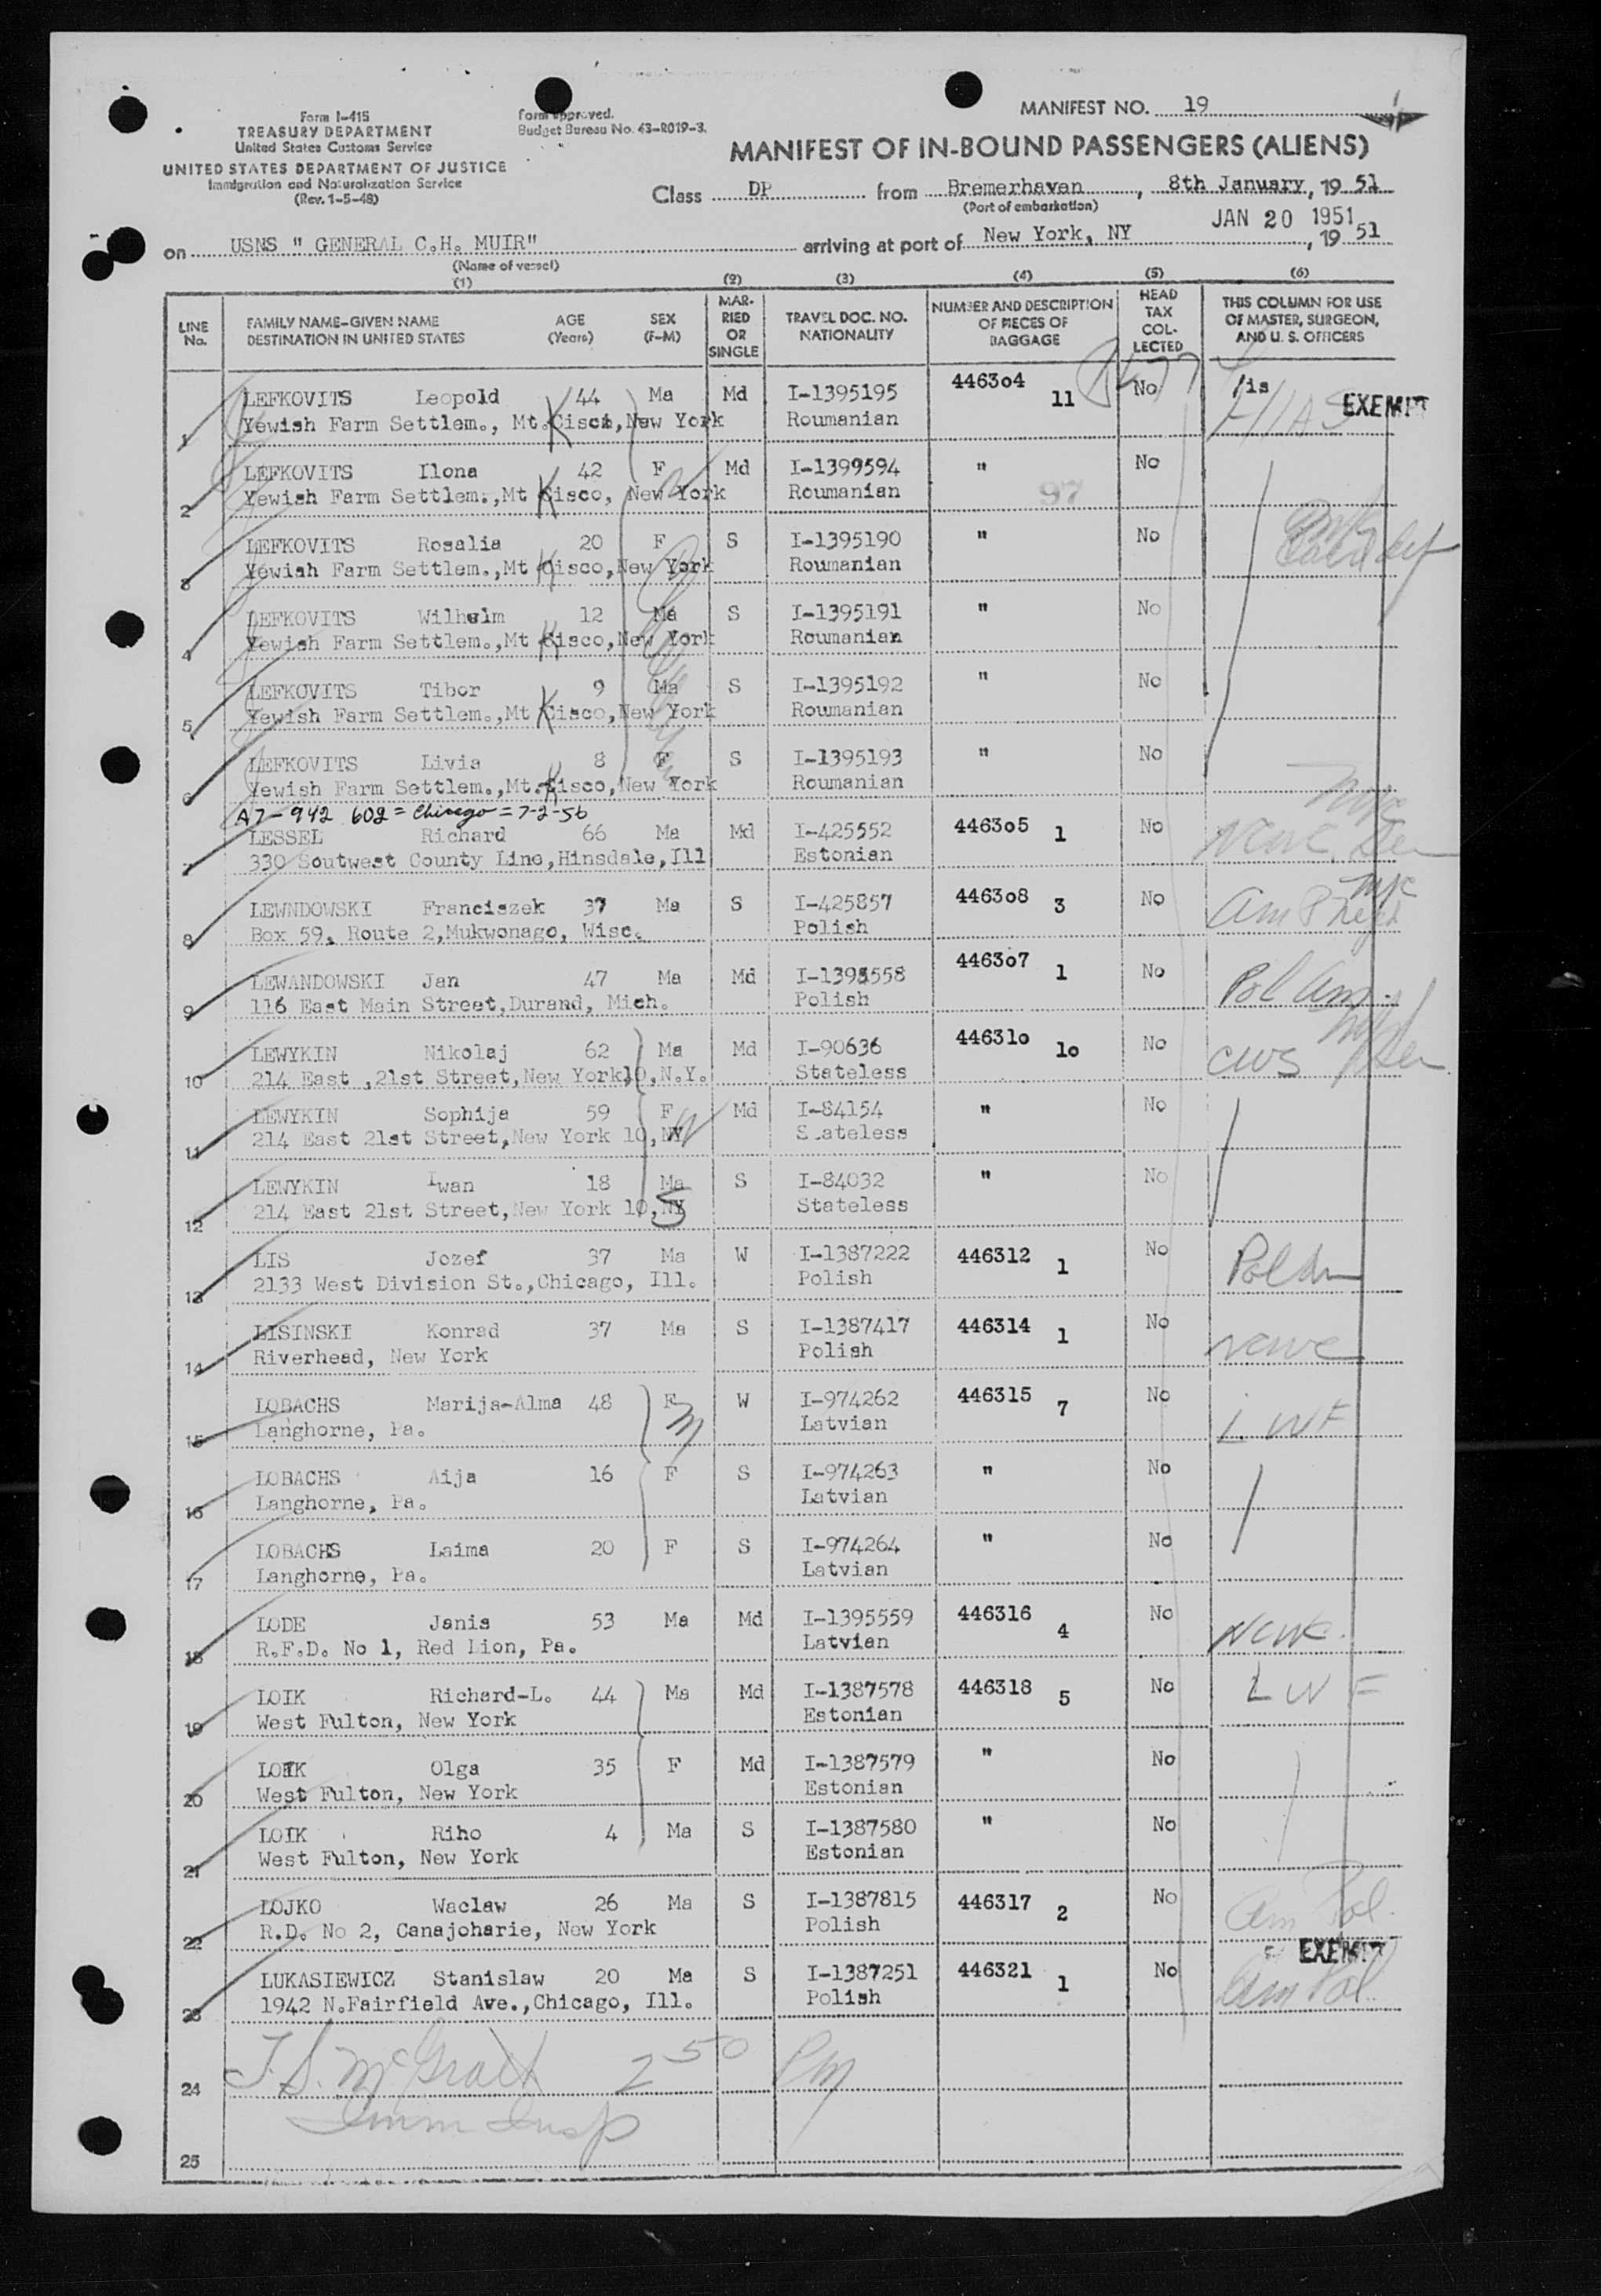 MANIFEST NO. 19
Form I-415
TREASURY DEPARTMENT
United States Customs Service
UNITED STATES DEPARTMENT OF JUSTICE
Immigration and Naturalization Service
(Rev. 1-5-48)
Form approved.
Budget Bureau No. 43-R019-3.
MANIFEST OF IN-BOUND PASSENGERS (ALIENS)
Class DP from Bremerhaven, 8th January, 19 51
(Port of embarkation)
JAN 20 1951
on USNS " GENERAL C.H. MUIR" arriving at port of New York, NY , 19 51
(Name of vessel)
(1) (2) (3) (4) (5) (6)
LINE No. FAMILY NAME-GIVEN NAME DESTINATION IN UNITED STATES AGE (Years) SEX (F-M) MARRIED OR SINGLE TRAVEL DOC. NO. NATIONALITY NUMBER AND DESCRIPTION OF PIECES OF BAGGAGE HEAD TAX COLLECTED THIS COLUMN FOR USE OF MASTER, SURGEON, AND U. S. OFFICERS
1 LEFKOVITS Leopold 44 Ma Md I-1395195 446304 11 No HIAS EXEMPT
Yewish Farm Settlem., Mt. Kisco, New York Roumanian
2 LEFKOVITS Ilona 42 F Md I-1399594 " No
Yewish Farm Settlem., Mt Kisco, New York Roumanian 97
3 LEFKOVITS Rosalia 20 F S I-1395190 " No
Yewish Farm Settlem., Mt Kisco, New York Roumanian
4 LEFKOVITS Wilhelm 12 Ma S I-1395191 " No
Yewish Farm Settlem., Mt Kisco, New York Roumanian
5 LEFKOVITS Tibor 9 Ma S I-1395192 " No
Yewish Farm Settlem., Mt Kisco, New York Roumanian
6 LEFKOVITS Livia 8 F S I-1395193 " No
Yewish Farm Settlem., Mt. Kisco, New York Roumanian
A7-942 602 = Chicago = 7-2-56
7 LESSEL Richard 66 Ma Md I-425552 446305 1 No NCWC
330 Soutwest County Line, Hinsdale, Ill Estonian
8 LEWNDOWSKI Franciszek 37 Ma S I-425857 446308 3 No
Box 59, Route 2, Mukwonago, Wisc. Polish
9 LEWANDOWSKI Jan 47 Ma Md I-1395558 446307 1 No Pol Am.
116 East Main Street, Durand, Mich. Polish
10 LEWYKIN Nikolaj 62 Ma Md I-90636 446310 10 No CWS
214 East ,21st Street, New York 10, N.Y. Stateless
11 LEWYKIN Sophija 59 F Md I-84154 " No
214 East 21st Street, New York 10, NY Stateless
12 LEWYKIN Iwan 18 Ma S I-84032 " No
214 East 21st Street, New York 10, NY Stateless
13 LIS Jozef 37 Ma W I-1387222 446312 1 No Pol Am
2133 West Division St., Chicago, Ill. Polish
14 LISINSKI Konrad 37 Ma S I-1387417 446314 1 No NCWC
Riverhead, New York Polish
15 LOBACHS Marija-Alma 48 F W I-974262 446315 7 No LWF
Langhorne, Pa. Latvian
16 LOBACHS Aija 16 F S I-974263 " No
Langhorne, Pa. Latvian
17 LOBACHS Laima 20 F S I-974264 " No
Langhorne, Pa. Latvian
18 LODE Janis 53 Ma Md I-1395559 446316 4 No NCWC.
R.F.D. No 1, Red Lion, Pa. Latvian
19 LOIK Richard-L. 44 Ma Md I-1387578 446318 5 No LWF
West Fulton, New York Estonian
20 LOIK Olga 35 F Md I-1387579 " No
West Fulton, New York Estonian
21 LOIK Riho 4 Ma S I-1387580 " No
West Fulton, New York Estonian
22 LOJKO Waclaw 26 Ma S I-1387815 446317 2 No Am Pol.
R.D. No 2, Canajoharie, New York Polish
EXEMPT
23 LUKASIEWICZ Stanislaw 20 Ma S I-1387251 446321 1 No Am Pol.
1942 N.Fairfield Ave., Chicago, Ill. Polish
24 T.S. McGrath 2 50 PM
Imm Insp
25